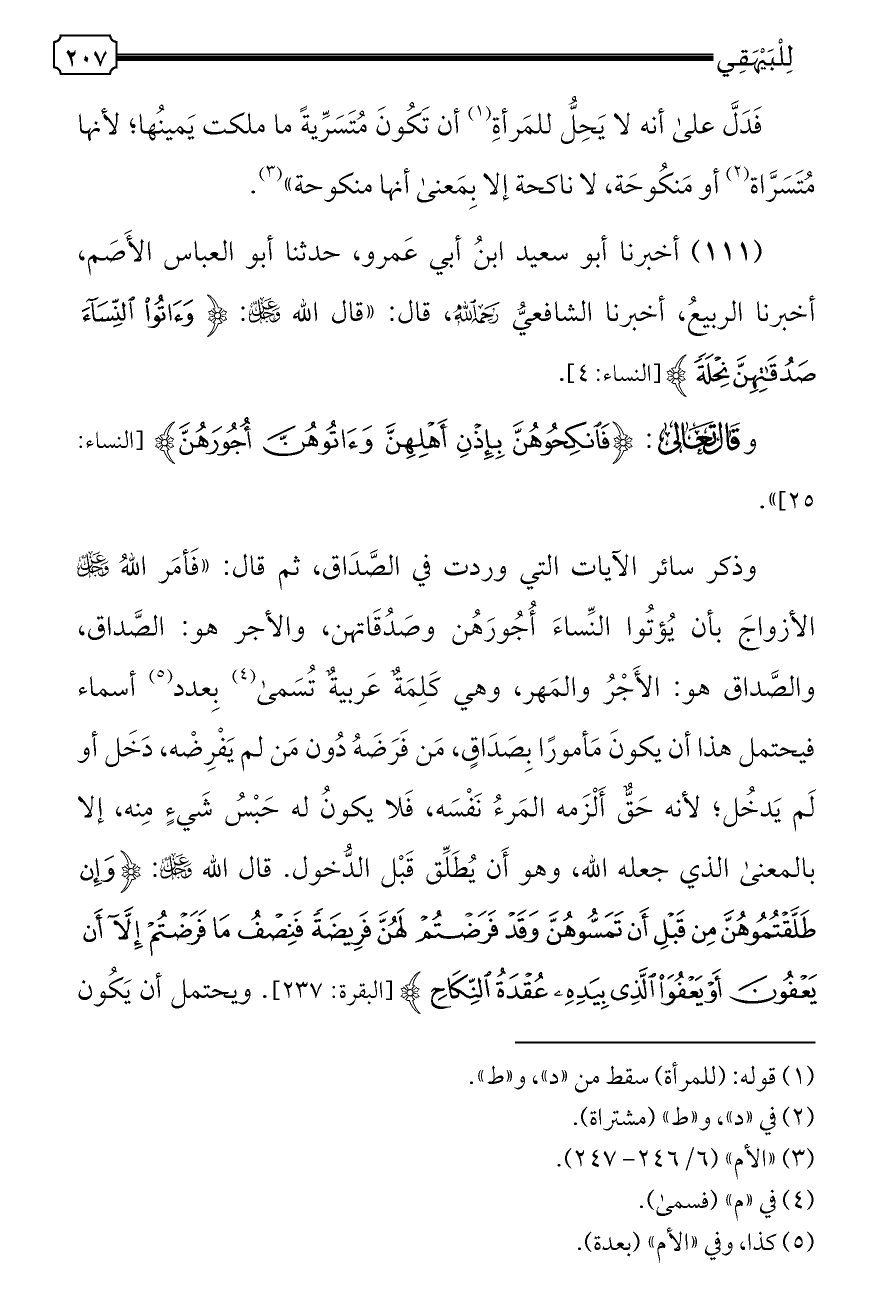 لِلْبَيْهَقِي
٢٠٧
فَدَلَّ علىٰ أنه لا يَحِلُّ للمَرأةِ(١) أن تَكُونَ مُتَسَرِّيةً ما ملكت يَمينُها؛ لأنها
مُتَسَرَّاة(٢) أو مَنكُوحَة، لا ناكحة إلا بِمَعنىٰ أنها منكوحة»(٣).
(١١١) أخبرنا أبو سعيد ابنُ أبي عَمرو، حدثنا أبو العباس الأَصَم،
أخبرنا الربيعُ، أخبرنا الشافعيُّ رَحِمَهُ اللَّهُ، قال: «قال الله عَزَّ وَجَلَّ: ﴿وَءَاتُوا۟ ٱلنِّسَآءَ
صَدُقَـٰتِهِنَّ نِحْلَةً﴾ [النساء: ٤].
وقَالَ تَعَالَىٰ: ﴿فَٱنكِحُوهُنَّ بِإِذْنِ أَهْلِهِنَّ وَءَاتُوهُنَّ أُجُورَهُنَّ﴾ [النساء:
٢٥]».
وذكر سائر الآيات التي وردت في الصَّدَاق، ثم قال: «فَأمَر اللهُ عَزَّ وَجَلَّ
الأزواجَ بأن يُؤتُوا النِّساءَ أُجُورَهُن وصَدُقَاتهن، والأجر هو: الصَّداق،
والصَّداق هو: الأَجْرُ والمَهر، وهي كَلِمَةٌ عَربيةٌ تُسَمىٰ(٤) بِعدد(٥) أسماء
فيحتمل هذا أن يكونَ مَأمورًا بِصَدَاقٍ، مَن فَرَضَهُ دُون مَن لم يَفْرِضْه، دَخَل أو
لَم يَدخُل؛ لأنه حَقٌّ أَلْزَمه المَرءُ نَفْسَه، فَلا يكونُ له حَبْسُ شَيءٍ مِنه، إلا
بالمعنىٰ الذي جعله الله، وهو أَن يُطَلِّق قَبْل الدُّخول. قال الله عَزَّ وَجَلَّ: ﴿وَإِن
طَلَّقْتُمُوهُنَّ مِن قَبْلِ أَن تَمَسُّوهُنَّ وَقَدْ فَرَضْتُمْ لَهُنَّ فَرِيضَةً فَنِصْفُ مَا فَرَضْتُمْ إِلَّآ أَن
يَعْفُونَ أَوْ يَعْفُوَا۟ ٱلَّذِى بِيَدِهِۦ عُقْدَةُ ٱلنِّكَاحِ﴾ [البقرة: ٢٣٧]. ويحتمل أن يَكُون
(١) قوله: (للمرأة) سقط من «د»، و«ط».
(٢) في «د»، و«ط» (مشتراة).
(٣) «الأم» (٦/ ٢٤٦ – ٢٤٧).
(٤) في «م» (فسمىٰ).
(٥) كذا، وفي «الأم» (بعدة).